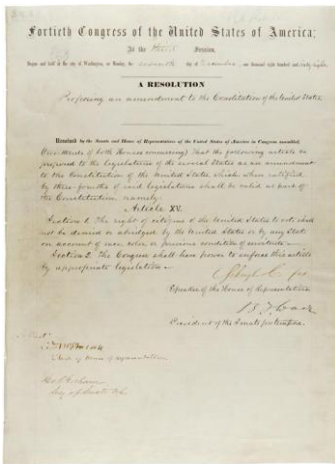 Fortieth Congress of the United States of America;
At the Third Session,
Begun and held at the city of Washington, on Monday, the seventh day of December, one thousand eight hundred and sixty-eight
A RESOLUTION
Proposing an amendment to the Constitution of the United States.
Resolved by the Senate and House of Representatives of the United States of America in Congress assembled,
(two-thirds of both Houses concurring) That the following article be
proposed to the legislatures of the several States as an amendment
to the Constitution of the United States which, when ratified
by three-fourths of said legislatures shall be valid as part of
the Constitution, namely:
Article XV.
Section 1. The right of citizens of the United States to vote shall
not be denied or abridged by the United States or by any State
on account of race, color, or previous condition of servitude.
Section 2. The Congress shall have power to enforce this article
by appropriate legislation.
Speaker of the House of Representatives
President of the Senate pro tempore.
Attest
Clerk of House of Representatives